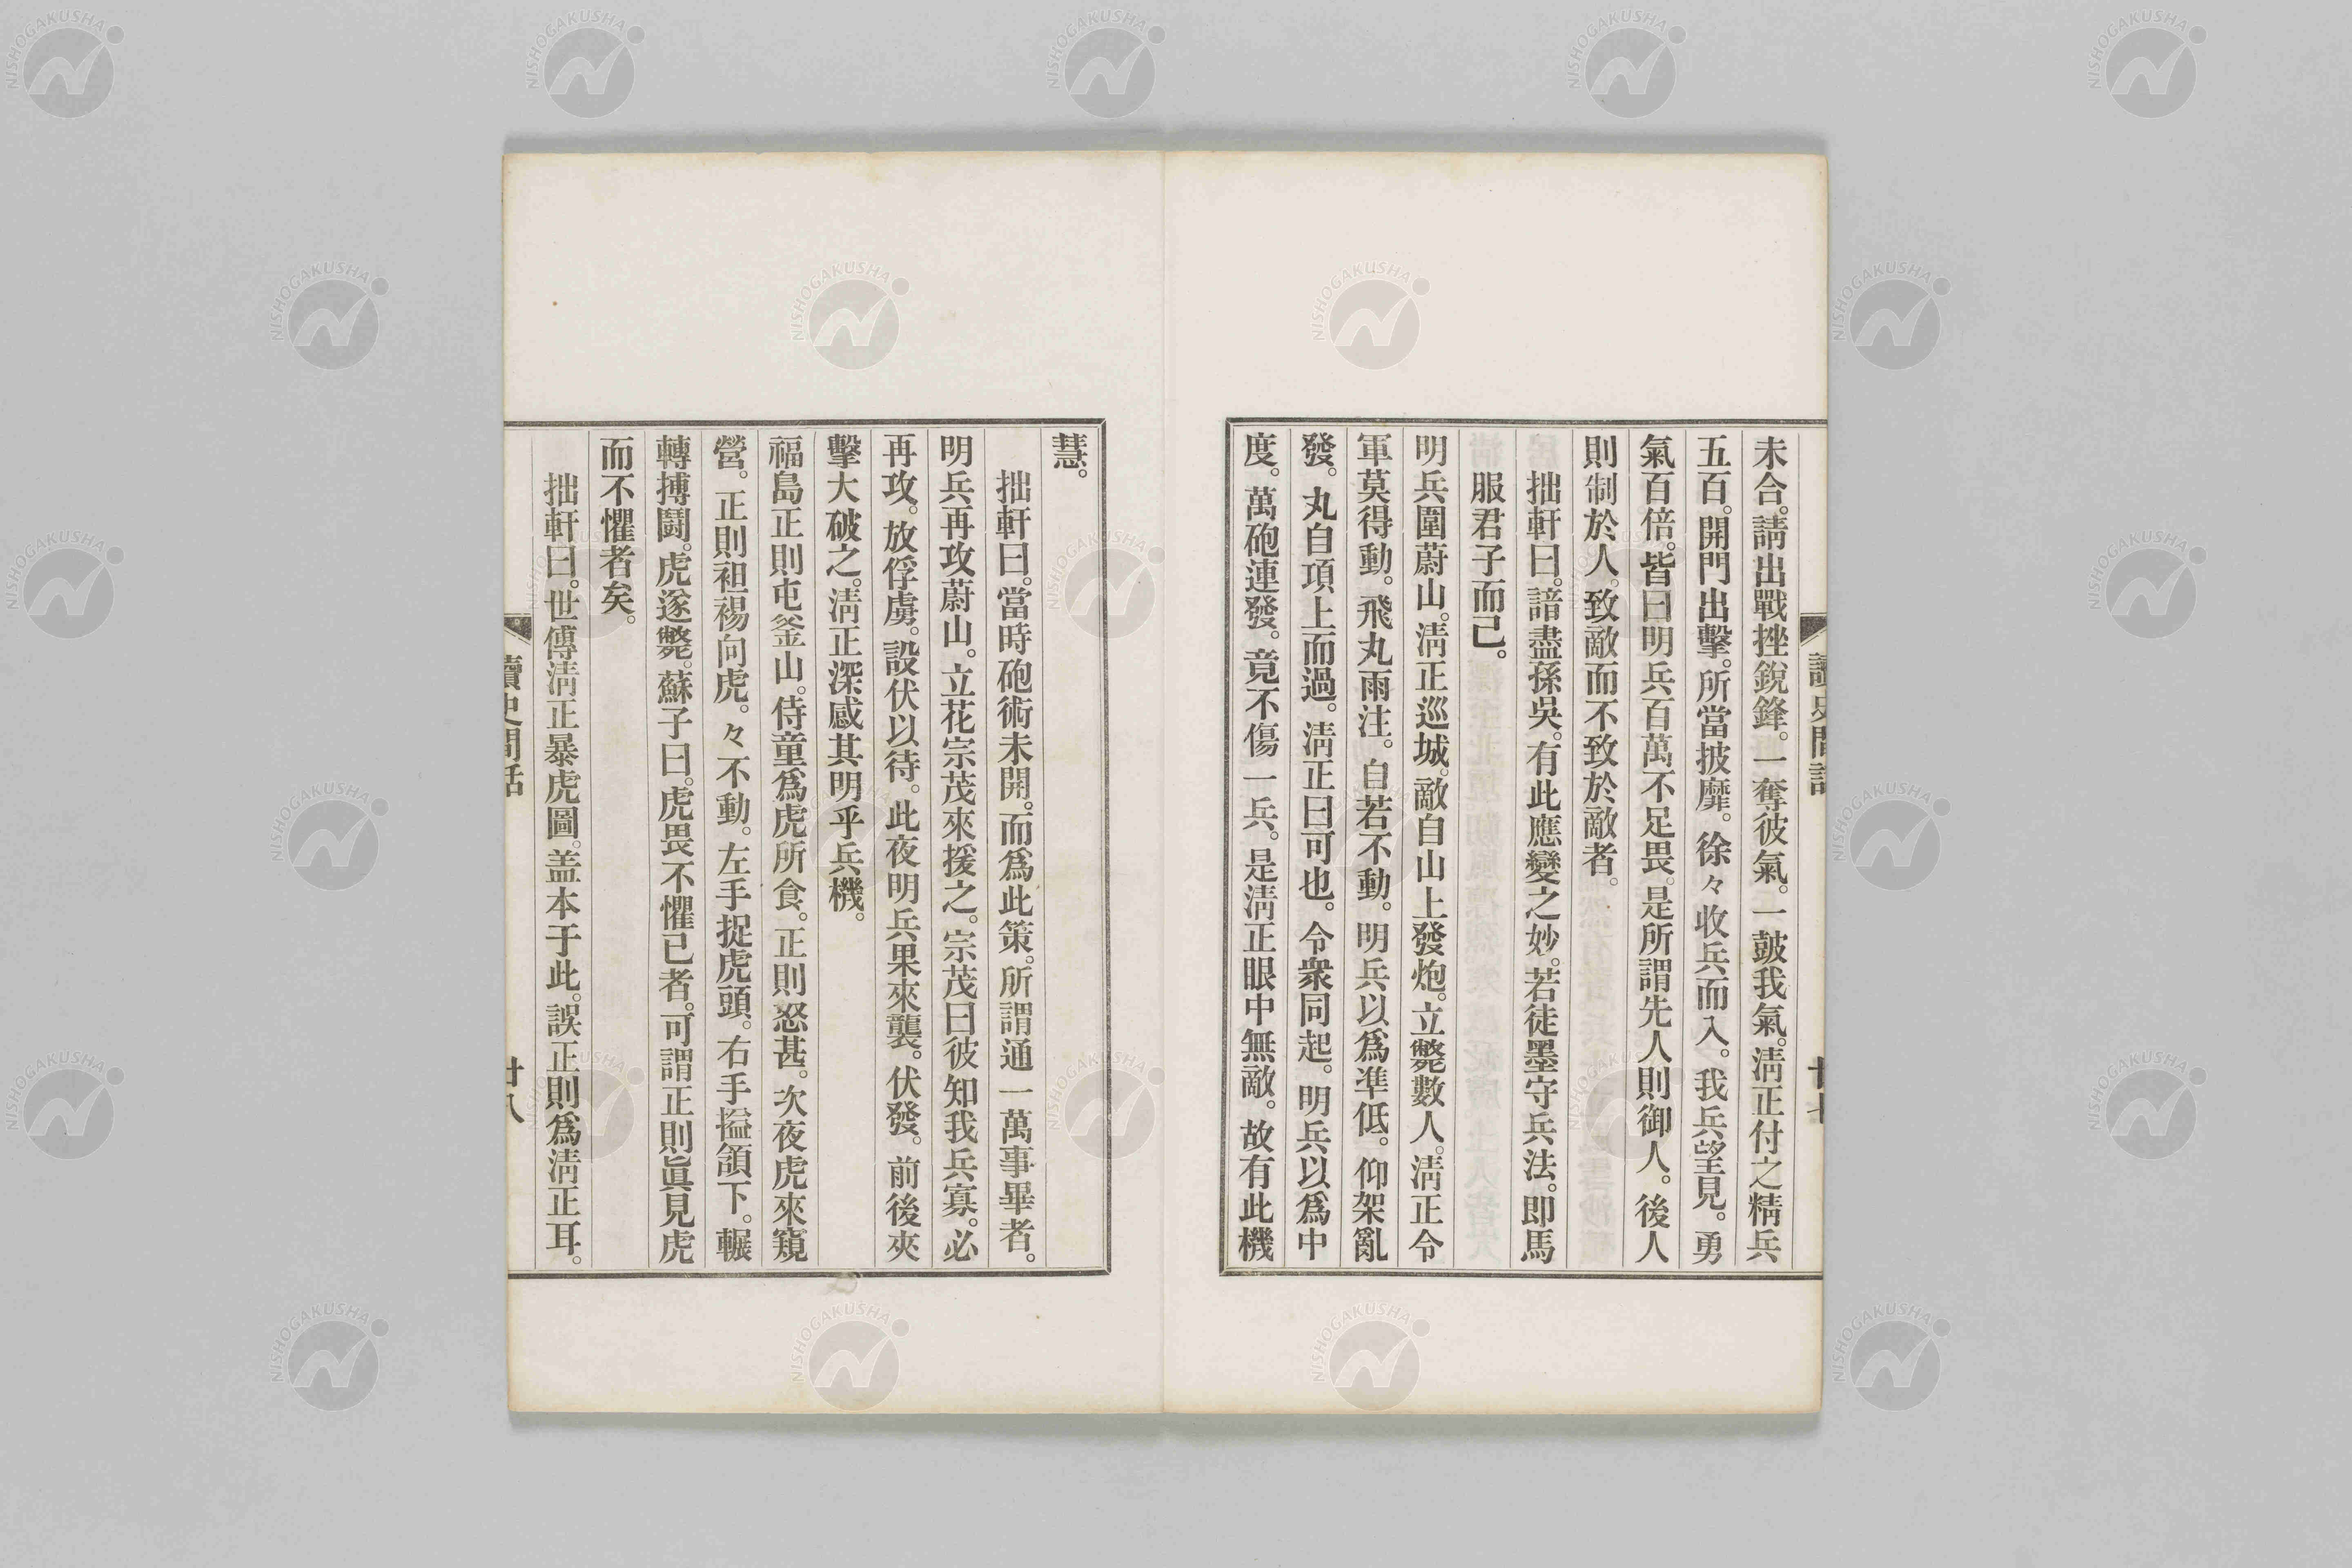 未合。請出戰挫銳鋒。一奪彼氣。一皷我氣。淸正付之精兵
五百。開門出擊。所當披靡。徐々收兵而入。我兵望見。勇
氣百倍。皆曰明兵百萬不足畏。是所謂先人則御人。後人
則制於人。致敵而不致於敵者。
拙軒曰。諳盡孫吳。有此應變之妙。若徒墨守兵法。卽馬
服君子而已。
明兵圍蔚山。淸正巡城。敵自山上發炮。立斃數人。淸正令
軍莫得動。飛丸雨注。自若不動。明兵以爲準低。仰架亂
發。丸自項上而過。淸正曰可也。令衆同起。明兵以爲中
度。萬砲連發。竟不傷一兵。是淸正眼中無敵。故有此機
慧。
拙軒曰。當時砲術未開。而爲此策。所謂通一萬事畢者。
明兵再攻蔚山。立花宗茂來援之。宗茂曰彼知我兵寡。必
再攻。放俘虜。設伏以待。此夜明兵果來襲。伏發。前後夾
擊大破之。淸正深感其明乎兵機。
福島正則屯釜山。侍童爲虎所食。正則怒甚。次夜虎來窺
營。正則袒裼向虎。々不動。左手捉虎頭。右手搤頷下。輾
轉搏鬪。虎遂斃。蘇子曰。虎畏不懼己者。可謂正則眞見虎
而不懼者矣。
拙軒曰。世傳淸正暴虎圖。盖本于此。誤正則爲淸正耳。
讀史閒話
廿八